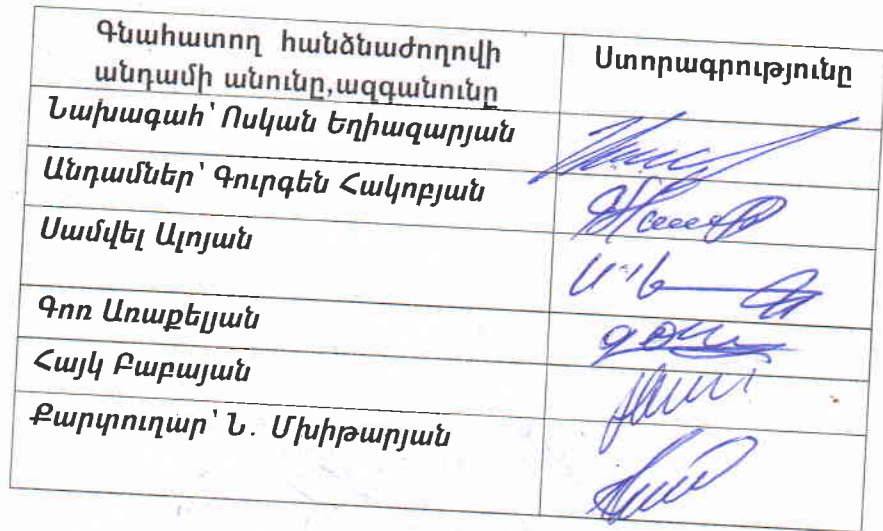 Գնահատող հանձնաժողովի
անդամի անունը,ազգանունը
Ստորագրությունը
Նախագահ՝ Ոսկան Եղիազարյան
Անդամներ՝ Գուրգեն Հակոբյան
Սամվել Ալոյան
Գոռ Առաքելյան
Հայկ Բաբայան
Քարտուղար՝ Ն. Մխիթարյան